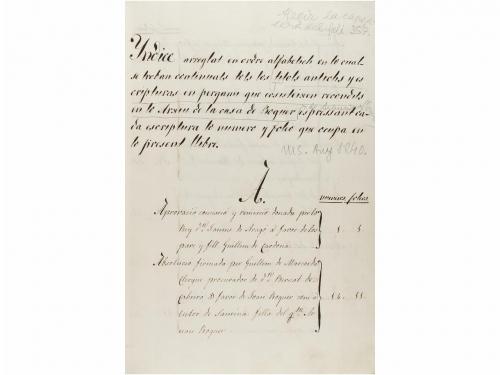 Yndice arreglat en ordre alfabetich en lo cual
se troban continuats tots los titols antichs y es
cripturas en pergami que existeixen recondits
en lo Arxiu de la casa de Boquer espressant ca-
da escriptura lo numero y folio que ocupa en
lo present Llibre.
MS. Any 1840.
A.
numeros folios
Aprovació comissio y remissió donada per lo
Rey Dn. Jaume de Aragó á favor de los
pare y fill Guillem de Cardona. 1. 1.
Absolucio firmada per Guillem de
procurador de Dn. Bernat de
Cabrera á favor de Joan Boquer com á
tutor de filla del qm. Jo
an Boquer. 14. 11.